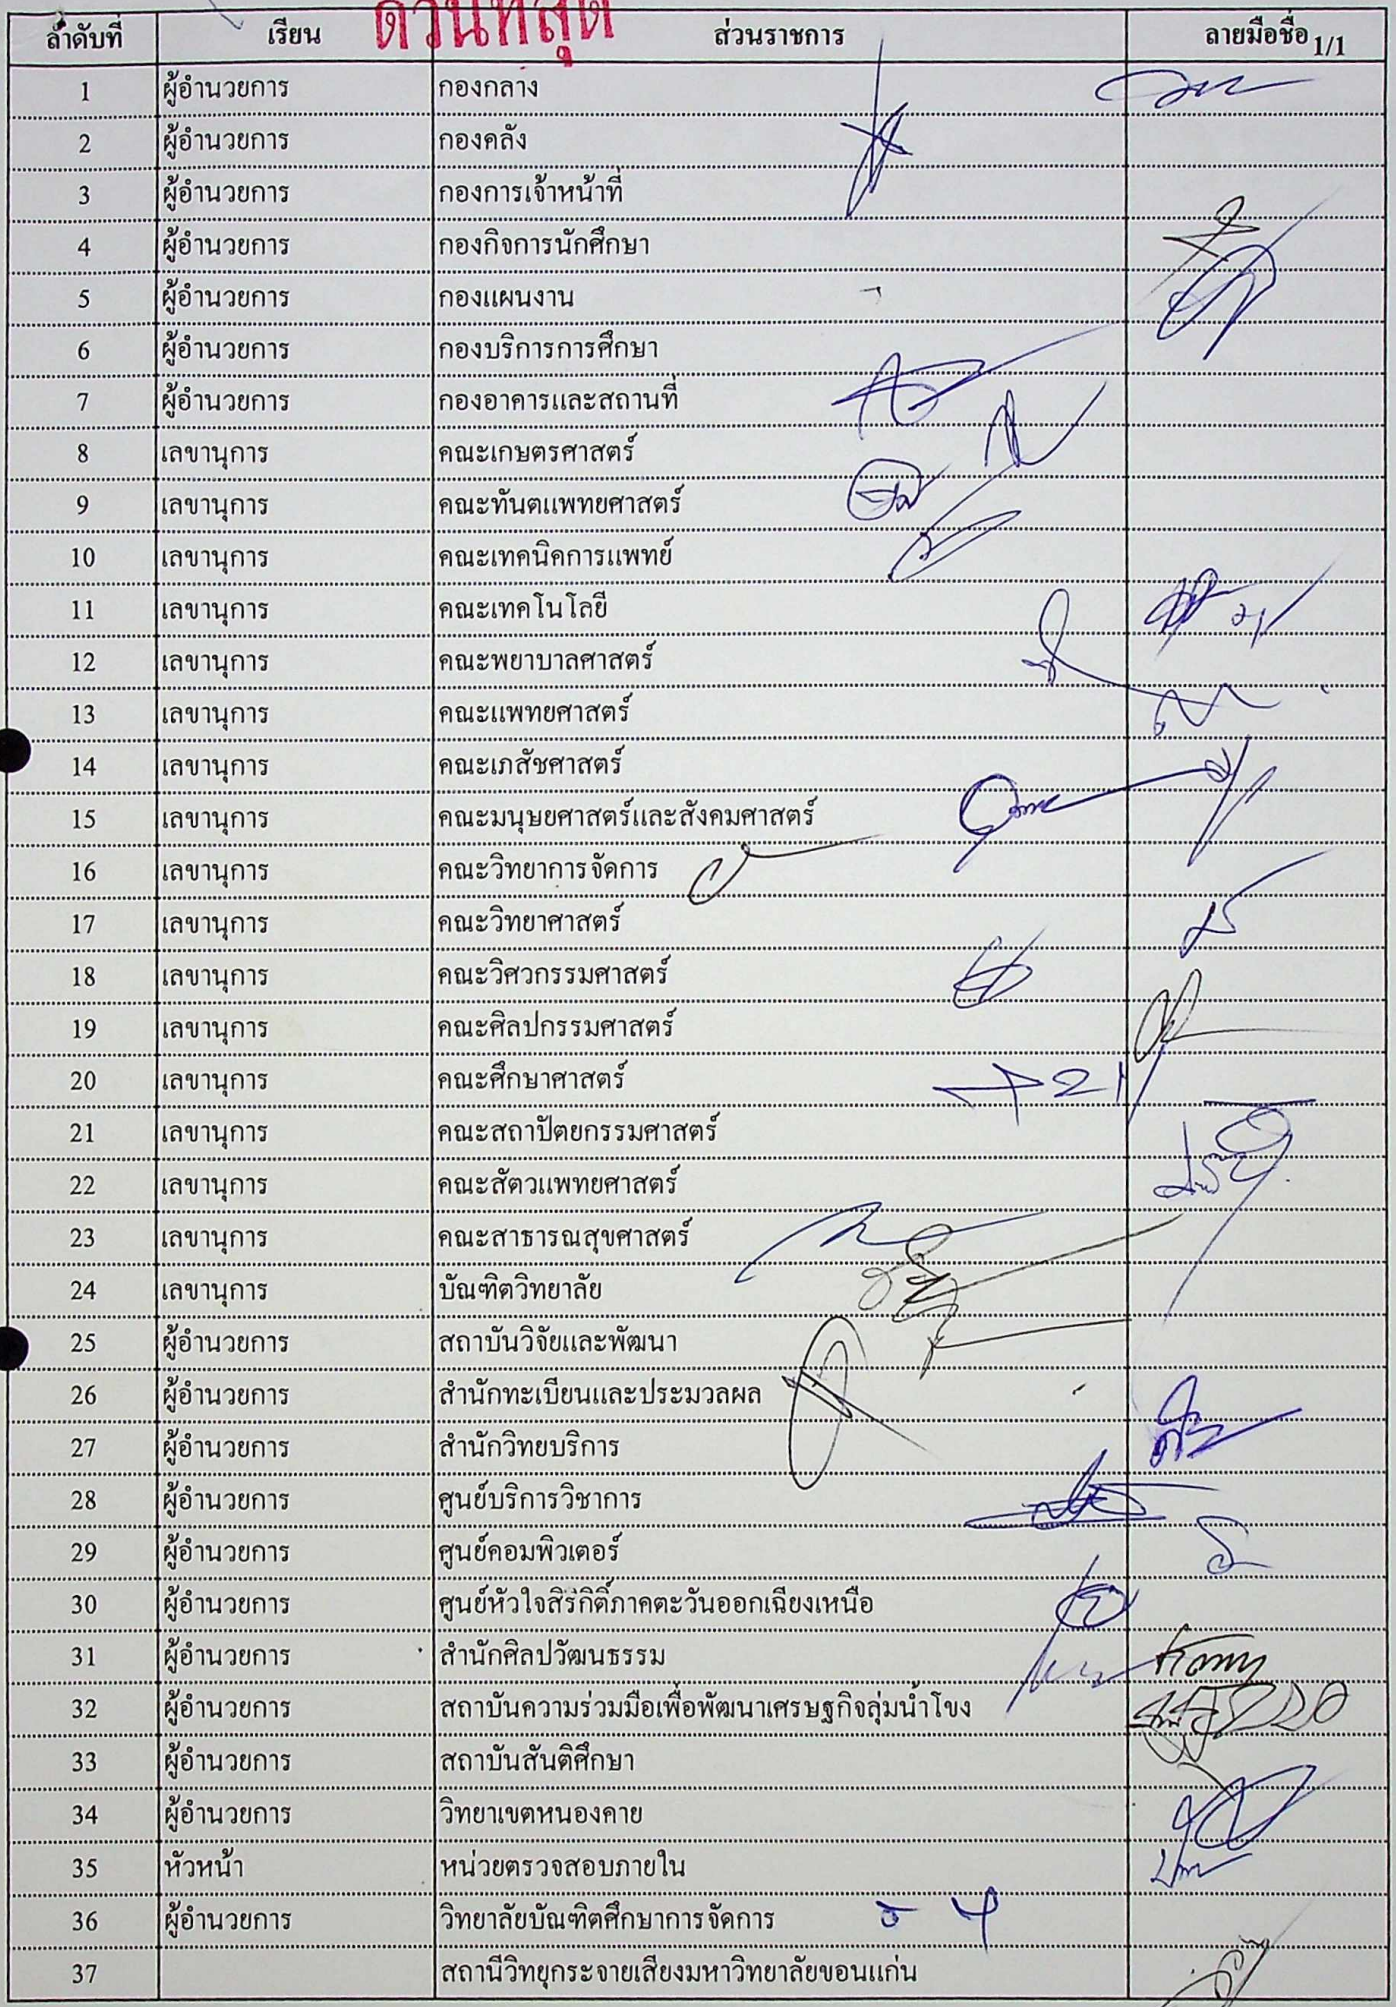 ด่วนที่สุด
ลำดับที่ เรียน ส่วนราชการ ลายมือชื่อ 1/1
1 ผู้อำนวยการ กองกลาง
2 ผู้อำนวยการ กองคลัง
3 ผู้อำนวยการ กองการเจ้าหน้าที่
4 ผู้อำนวยการ กองกิจการนักศึกษา
5 ผู้อำนวยการ กองแผนงาน
6 ผู้อำนวยการ กองบริการการศึกษา
7 ผู้อำนวยการ กองอาคารและสถานที่
8 เลขานุการ คณะเกษตรศาสตร์
9 เลขานุการ คณะทันตแพทยศาสตร์
10 เลขานุการ คณะเทคนิคการแพทย์
11 เลขานุการ คณะเทคโนโลยี
12 เลขานุการ คณะพยาบาลศาสตร์
13 เลขานุการ คณะแพทยศาสตร์
14 เลขานุการ คณะเภสัชศาสตร์
15 เลขานุการ คณะมนุษยศาสตร์และสังคมศาสตร์
16 เลขานุการ คณะวิทยาการจัดการ
17 เลขานุการ คณะวิทยาศาสตร์
18 เลขานุการ คณะวิศวกรรมศาสตร์
19 เลขานุการ คณะศิลปกรรมศาสตร์
20 เลขานุการ คณะศึกษาศาสตร์
21 เลขานุการ คณะสถาปัตยกรรมศาสตร์
22 เลขานุการ คณะสัตวแพทยศาสตร์
23 เลขานุการ คณะสาธารณสุขศาสตร์
24 เลขานุการ บัณฑิตวิทยาลัย
25 ผู้อำนวยการ สถาบันวิจัยและพัฒนา
26 ผู้อำนวยการ สำนักทะเบียนและประมวลผล
27 ผู้อำนวยการ สำนักวิทยบริการ
28 ผู้อำนวยการ ศูนย์บริการวิชาการ
29 ผู้อำนวยการ ศูนย์คอมพิวเตอร์
30 ผู้อำนวยการ ศูนย์หัวใจสิริกิติ์ภาคตะวันออกเฉียงเหนือ
31 ผู้อำนวยการ สำนักศิลปวัฒนธรรม
32 ผู้อำนวยการ สถาบันความร่วมมือเพื่อพัฒนาเศรษฐกิจลุ่มน้ำโขง
33 ผู้อำนวยการ สถาบันสันติศึกษา
34 ผู้อำนวยการ วิทยาเขตหนองคาย
35 หัวหน้า หน่วยตรวจสอบภายใน
36 ผู้อำนวยการ วิทยาลัยบัณฑิตศึกษาการจัดการ
37 สถานีวิทยุกระจายเสียงมหาวิทยาลัยขอนแก่น